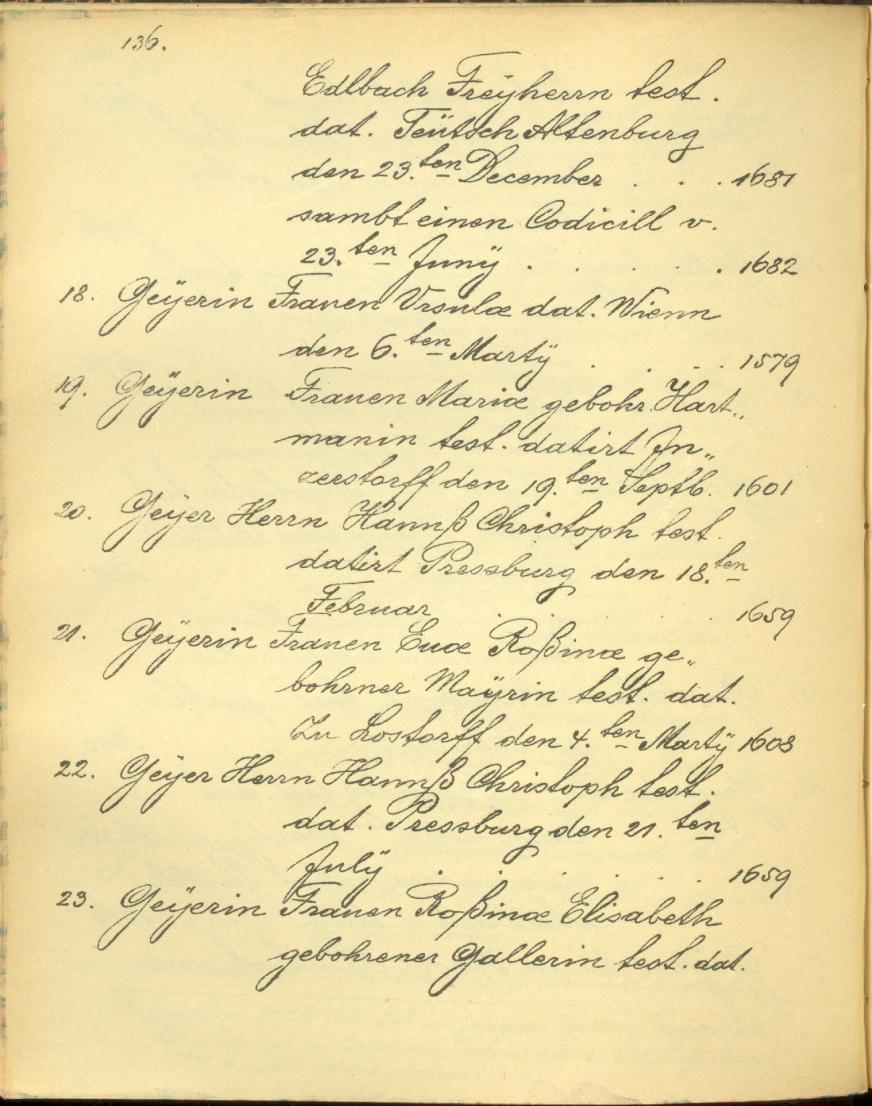 136.
Edlbach Freÿherrn test.
dat. Teütsch Altenburg
den 23.ten December . . . 1681
sambt einen Codicill v.
23.ten Junÿ . . . . 1682
18. Geÿerin Frauen Vrsulæ dat. Wienn
den 6.ten Martÿ . . . . 1579
19. Geÿerin Frauen Mariæ gebohr. Hart„
manin test. datirt In„
zerstorff den 19.ten Septb. 1601
20. Geÿer Herrn Hannß Christoph test.
datirt Pressburg den 18.ten
Februar . . . . 1659
21. Geÿerin Frauen Euæ Roßinæ ge„
bohrner Maÿrin test. dat.
Zu Lostorff den 4.ten Martÿ 1608
22. Geÿer Herrn Hannß Christoph test.
dat. Pressburg den 21.ten
Julÿ . . . . 1659
23. Geÿerin Frauen Roßinæ Elisabeth
gebohrener Gallerin test. dat.